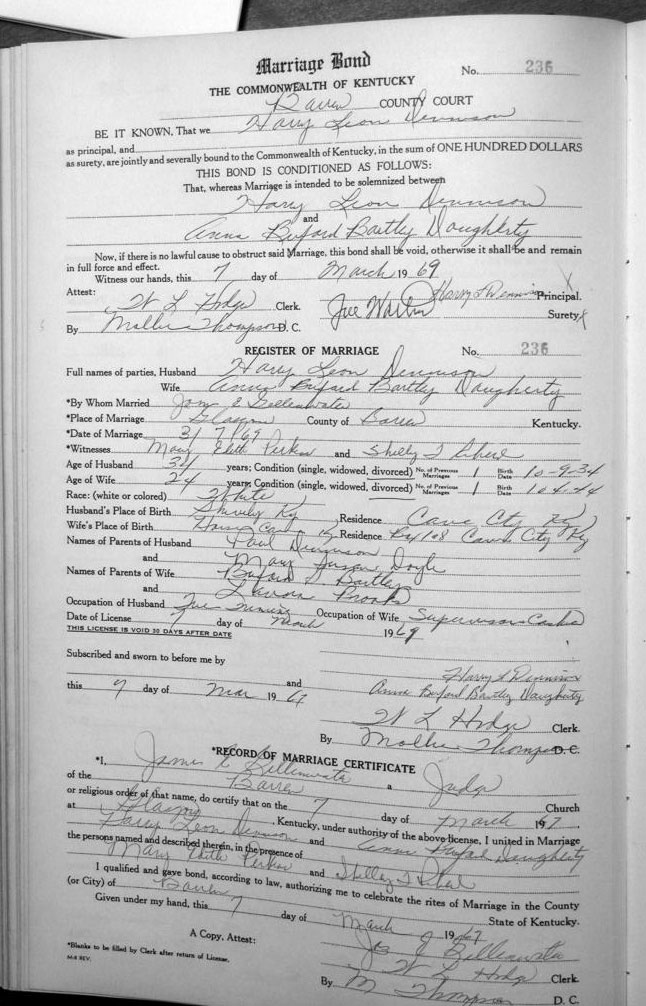 Marriage Bond
No. 236
THE COMMONWEALTH OF KENTUCKY
Barren COUNTY COURT
BE IT KNOWN, That we Harry Leon Dennison
as principal, and
as surety, are jointly and severally bound to the Commonwealth of Kentucky, in the sum of ONE HUNDRED DOLLARS
THIS BOND IS CONDITIONED AS FOLLOWS:
That, whereas Marriage is intended to be solemnized between
Harry Leon Dennison
and
Anna Buford Bartley Daugherty
Now, if there is no lawful cause to obstruct said Marriage, this bond shall be void, otherwise it shall be and remain
in full force and effect.
Witness our hands, this 7 day of March 1969
Attest: Harry L Dennison Principal. X
W L Hodge Clerk. Joe Surety X
By Mollie Thompson D. C.
REGISTER OF MARRIAGE No. 236
Full names of parties, Husband Harry Leon Dennison
Wife Anna Buford Bartley Daugherty
*By Whom Married Gillenwater
*Place of Marriage Glasgow County of Barren Kentucky.
*Date of Marriage 3/7/69
*Witnesses Mary Edith and Shelby T
Age of Husband 34 years; Condition (single, widowed, divorced) No. of Previous Marriages 1 Birth Date 10-9-34
Age of Wife 24 years; Condition (single, widowed, divorced) No. of Previous Marriages 1 Birth Date 10-4-44
Race: (white or colored) White
Husband's Place of Birth Ky Residence Cave City Ky
Wife's Place of Birth Residence Box 108 Cave City Ky
Names of Parents of Husband Paul Dennison
and Mary Susan Doyle
Names of Parents of Wife Buford Bartley
and Brooks
Occupation of Husband Occupation of Wife Supervisor
Date of License 7 day of March 1969
THIS LICENSE IS VOID 30 DAYS AFTER DATE
Subscribed and sworn to before me by
Harry L Dennison
and Anna Buford Bartley Daugherty
this 7 day of Mar 19
W L Hodge Clerk
By Mollie Thompson D. C.
*RECORD OF MARRIAGE CERTIFICATE
*I, James Gillenwater a Judge
of the Barren Church
or religious order of that name, do certify that on the 7 day of March 19
at Glasgow, Kentucky, under authority of the above license, I united in Marriage
Harry Leon Dennison and Anna Buford Daugherty
the persons named and described therein, in the presence of
Mary Edith and Shelby T
I qualified and gave bond, according to law, authorizing me to celebrate the rites of Marriage in the County
(or City) of Barren State of Kentucky.
Given under my hand, this 7 day of March 19
Gillenwater
A Copy, Attest: W L Hodge Clerk
*Blanks to be filled by Clerk after return of License.
By M Thompson D. C.